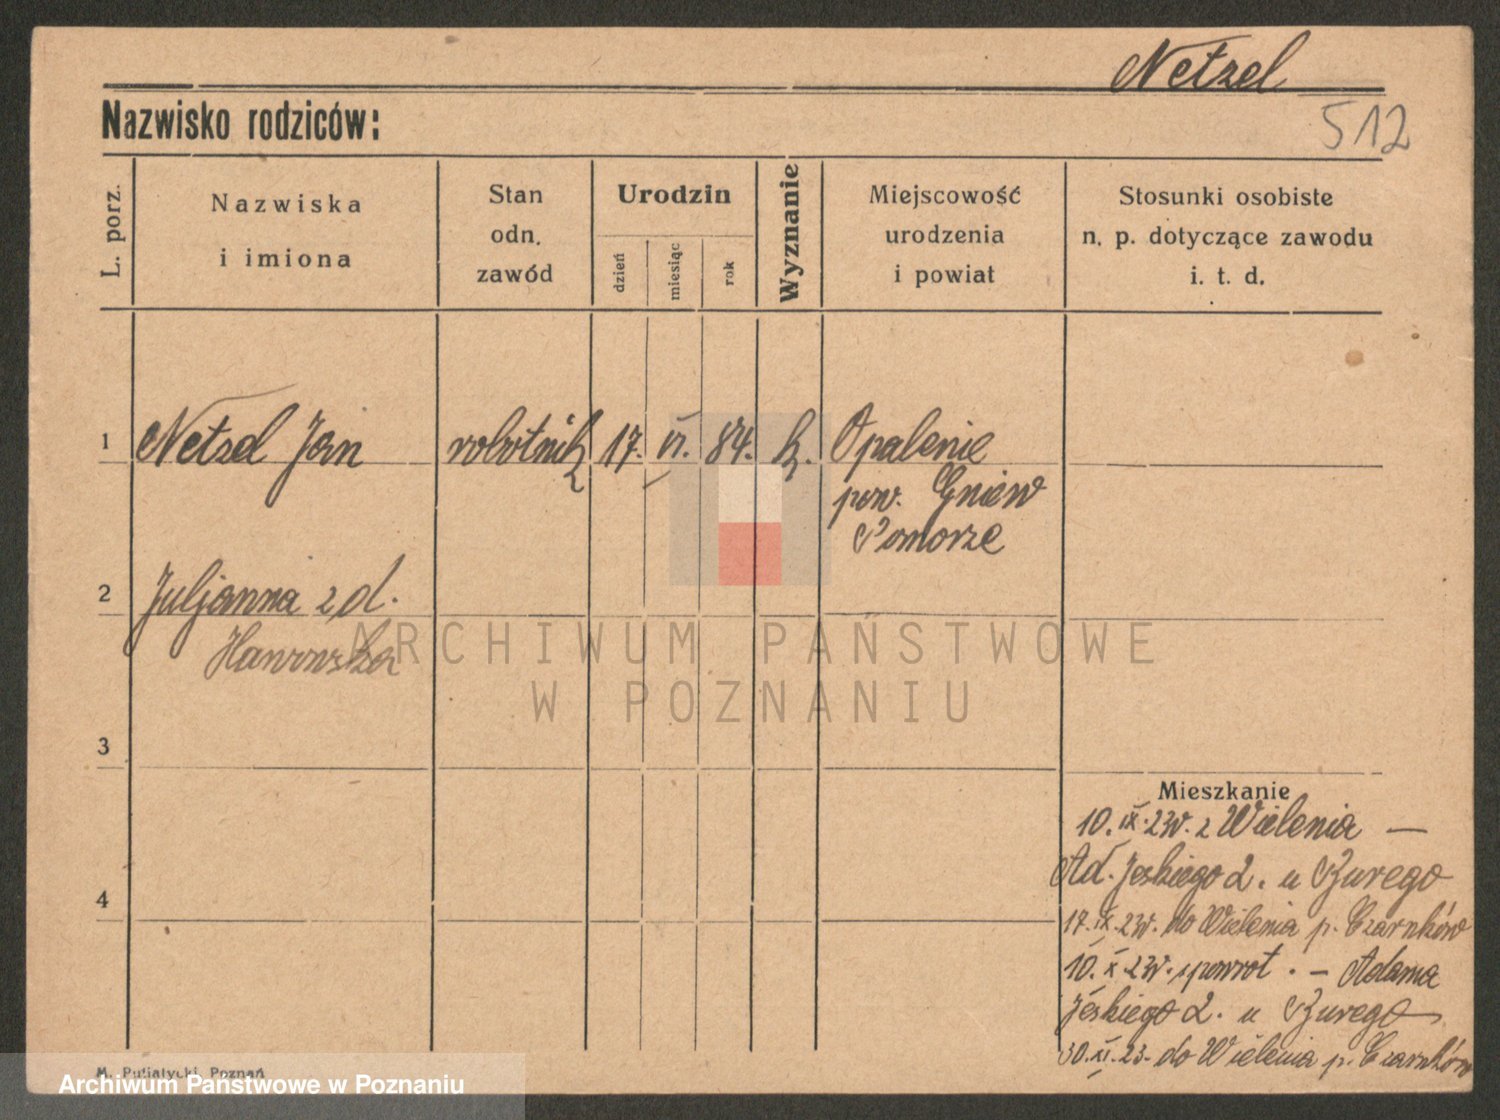 Netzel
512
Nazwisko rodziców:
L. porz.
Nazwiska
i imiona
Stan
odn.
zawód
Urodzin
dzień
miesiąc
rok
Wyznanie
Miejscowość
urodzenia
i powiat
Stosunki osobiste
n. p. dotyczące zawodu
i. t. d.
1 Netzel Jan robotnik 17. VI. 84. k. Opalenie
pow. Gniew
Pomorze
2 Juljanna z d.
Hawowska
ARCHIWUM PAŃSTWOWE
W POZNANIU
3
Mieszkanie
10. IX. 23r. z Wielenia —
Ad. Jeskiego 2. u Burego
4
17. IX. 23r. do Wielenia p. Czarnków
10. X. 23r. spowrot. — Adama
Jeskiego 2. u Burego
30. XI. 23. do Wielenia p. Czarnków
M. Putiatycki Poznań
Archiwum Państwowe w Poznaniu